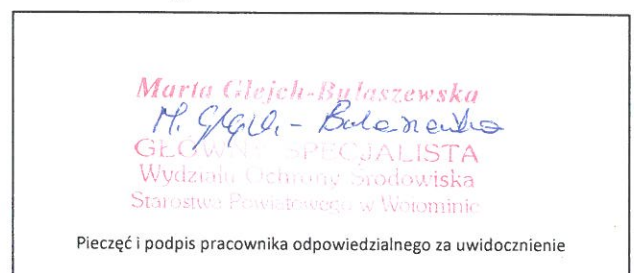 Marta Glejch-Bułaszewska
M. Glejch - Bułaszewska
GŁÓWNY SPECJALISTA
Wydziału Ochrony Środowiska
Starostwa Powiatowego w Wołominie
Pieczęć i podpis pracownika odpowiedzialnego za uwidocznienie